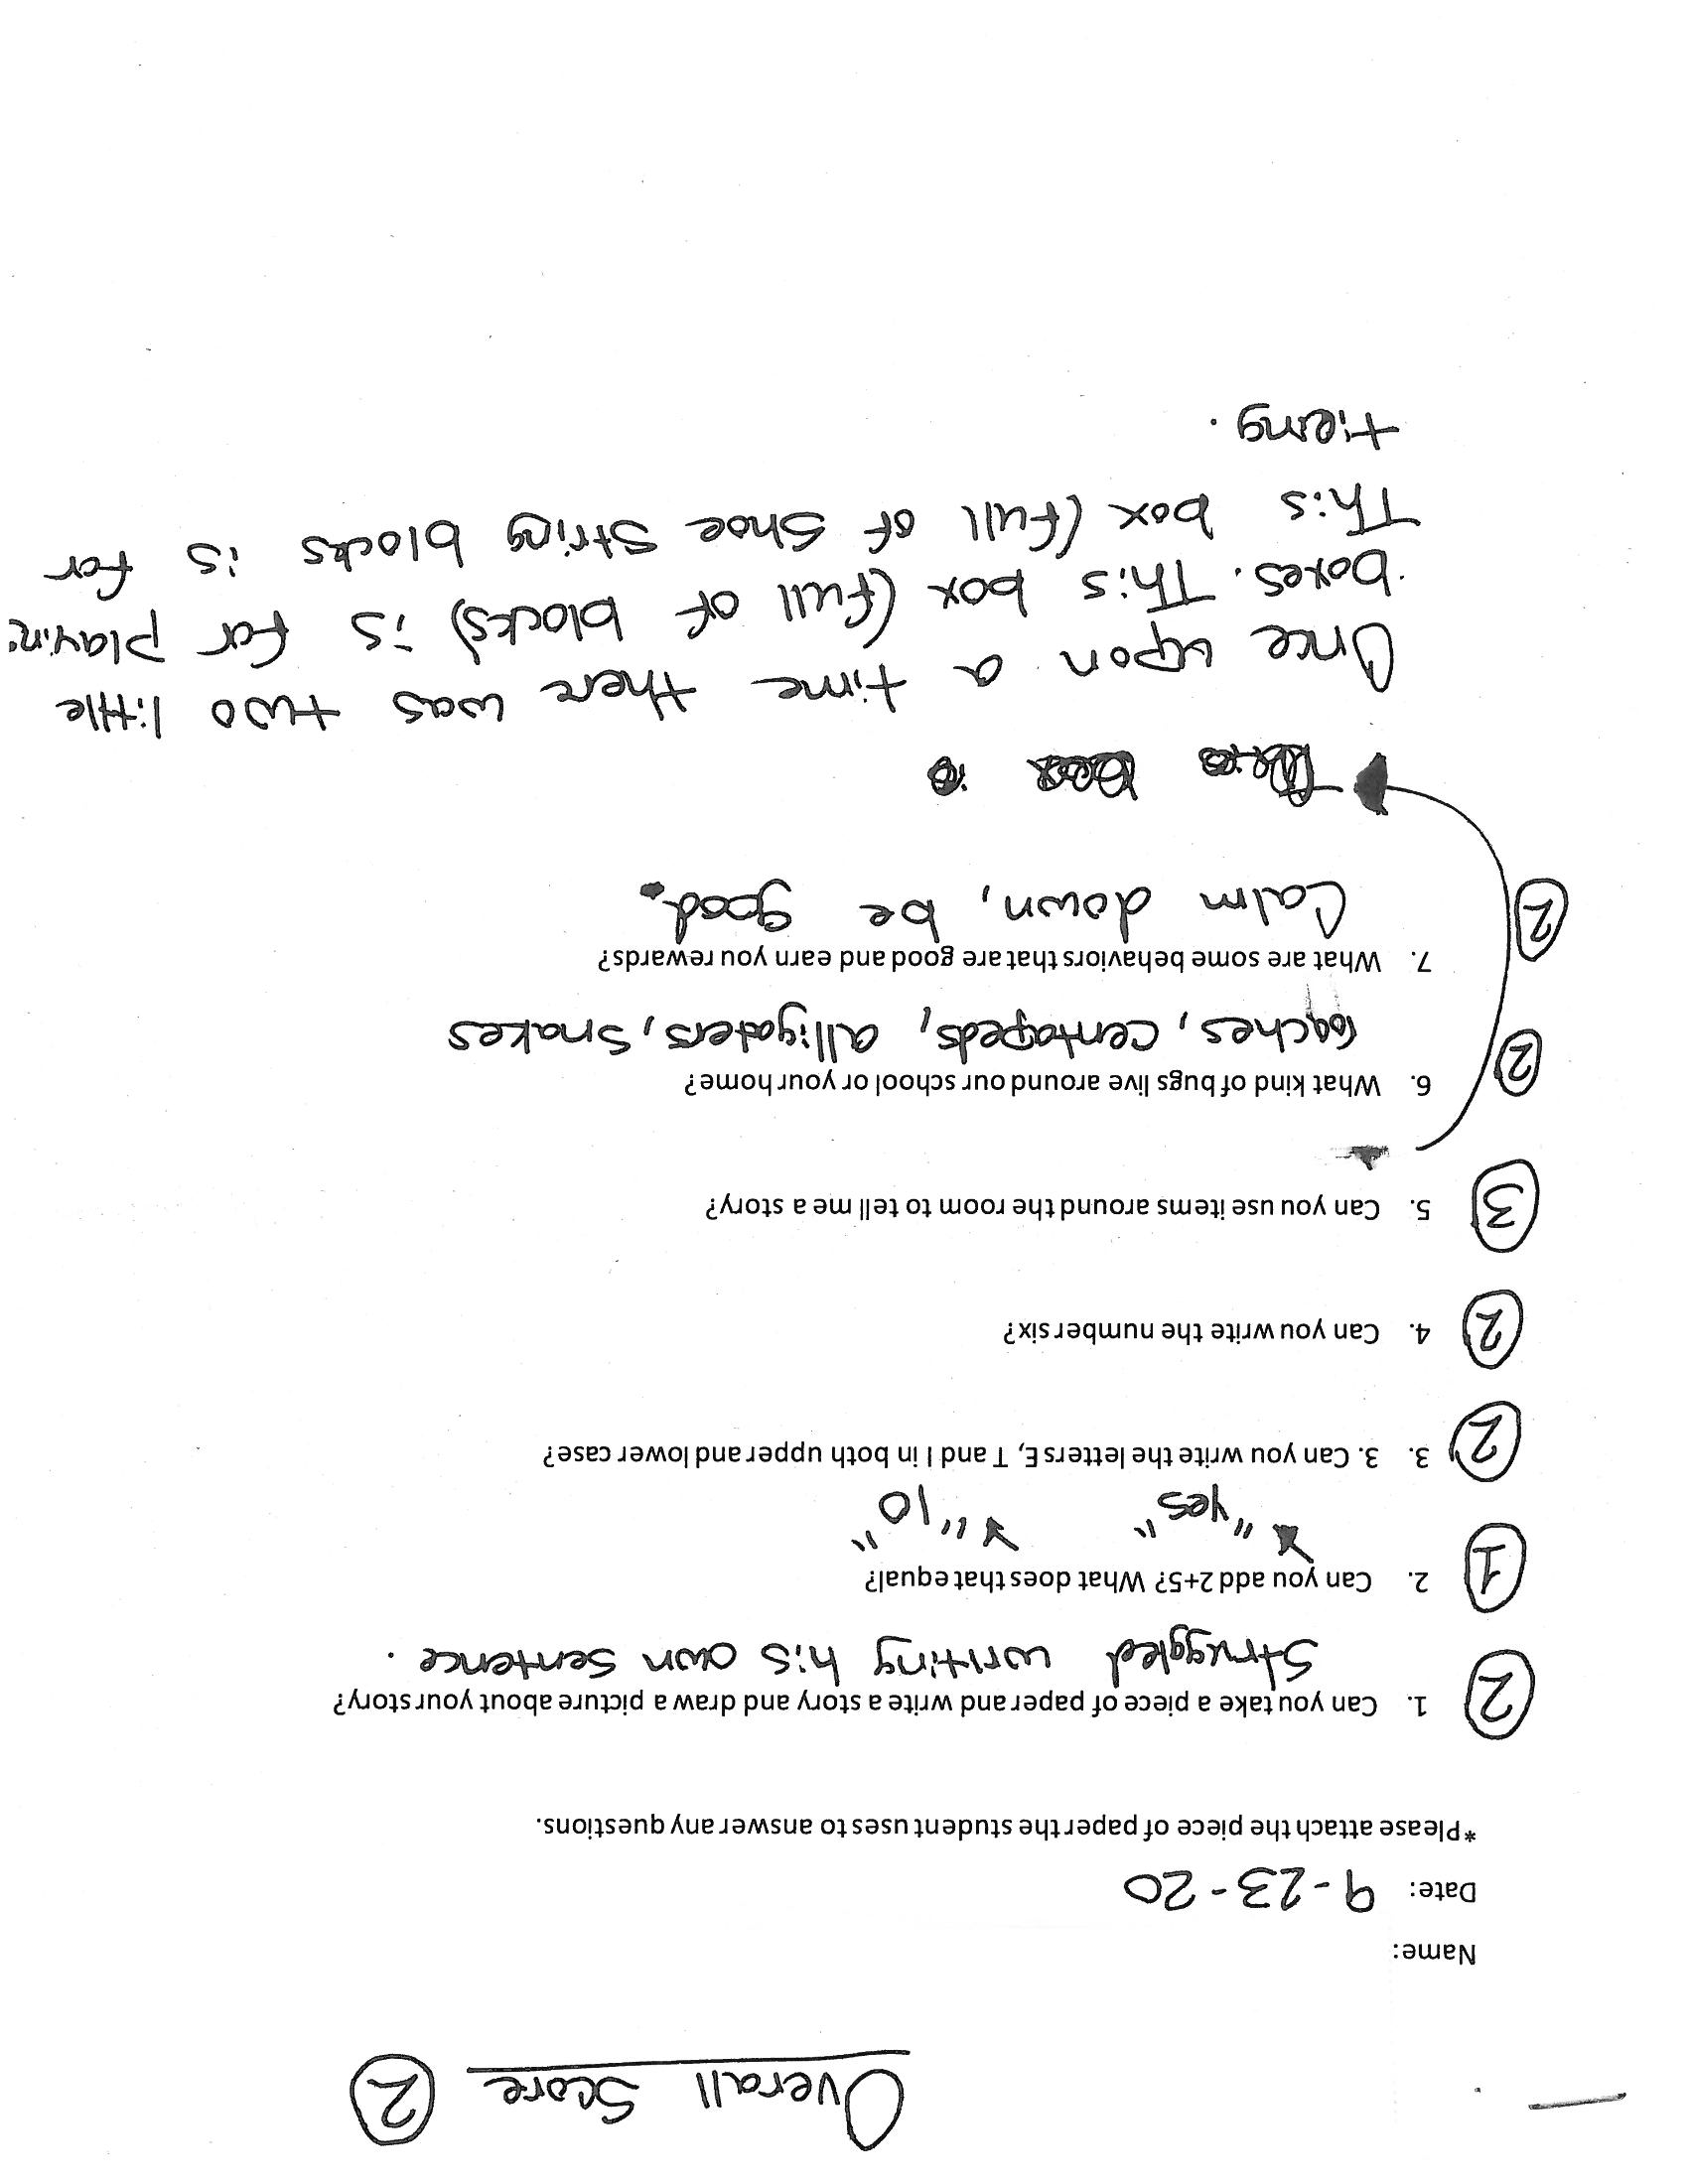 Overall Score 2
Name:
Date: 9-23-20
*Please attach the piece of paper the student uses to answer any questions.
2 1. Can you take a piece of paper and write a story and draw a picture about your story?
Struggled writing his own sentence.
1 2. Can you add 2+5? What does that equal?
"yes" "10"
2 3. 3. Can you write the letters E, T and I in both upper and lower case?
2 4. Can you write the number six?
3 5. Can you use items around the room to tell me a story?
2 6. What kind of bugs live around our school or your home?
roaches, centapeds, alligaters, snakes
2 7. What are some behaviors that are good and earn you rewards?
Calm down, be good.
Once upon a time there was two little
boxes. This box (full of blocks) is for
This box (full of shoe string blocks is for
tieing.